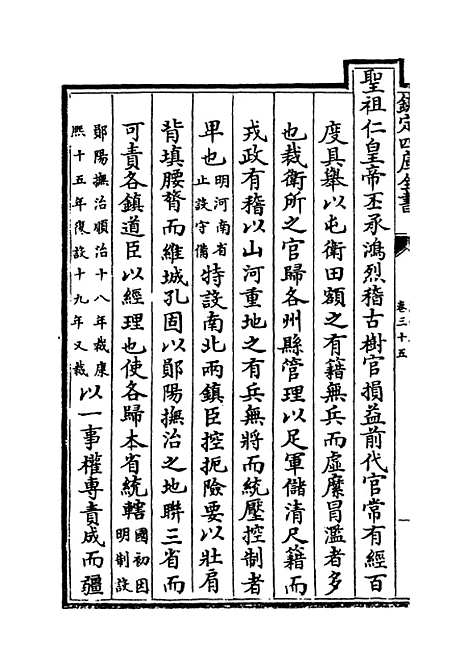 欽定四庫全書
卷三十五
聖祖仁皇帝丕承鴻烈稽古樹官損益前代官常有經百
度具舉以屯衛田額之有籍無兵而虛糜冒濫者多
也裁衛所之官歸各州縣管理以足軍儲清尺籍而
戎政有稽以山河重地之有兵無將而統壓控制者
畢也明河南省止設守備特設南北兩鎮臣控扼險要以壯肩
背填腰膂而維城孔固以鄖陽撫治之地聨三省而
可責各鎮道臣以經理也使各歸本省統轄國初因明制設
鄖陽撫治順治十八年裁康熙十五年復設十九年又裁以一事權專責成而疆